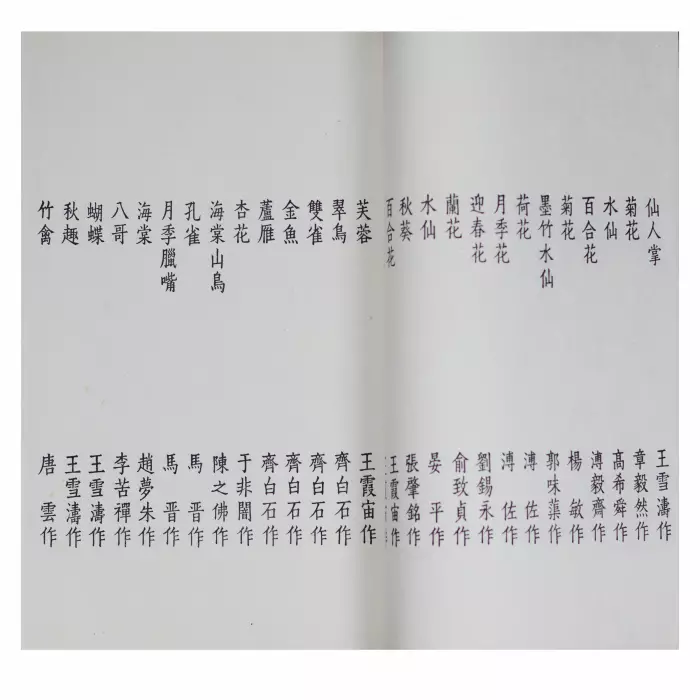 仙人掌 王雪濤作
菊花 章毅然作
水仙 高希舜作
百合花 溥毅齊作
菊花 楊敏作
墨竹水仙 郭味蕖作
荷花 溥佐作
月季花 溥佐作
迎春花 劉錫永作
蘭花 俞致貞作
水仙 晏平作
秋葵 張肇銘作
百合花 王霞宙作
芙蓉 王霞宙作
翠鳥 齊白石作
雙雀 齊白石作
金魚 齊白石作
蘆雁 齊白石作
杏花 于非闇作
海棠山鳥 陳之佛作
孔雀 馬晋作
月季臘嘴 馬晋作
海棠 趙夢朱作
八哥 李苦禪作
蝴蝶 王雪濤作
秋趣 王雪濤作
竹禽 唐雲作